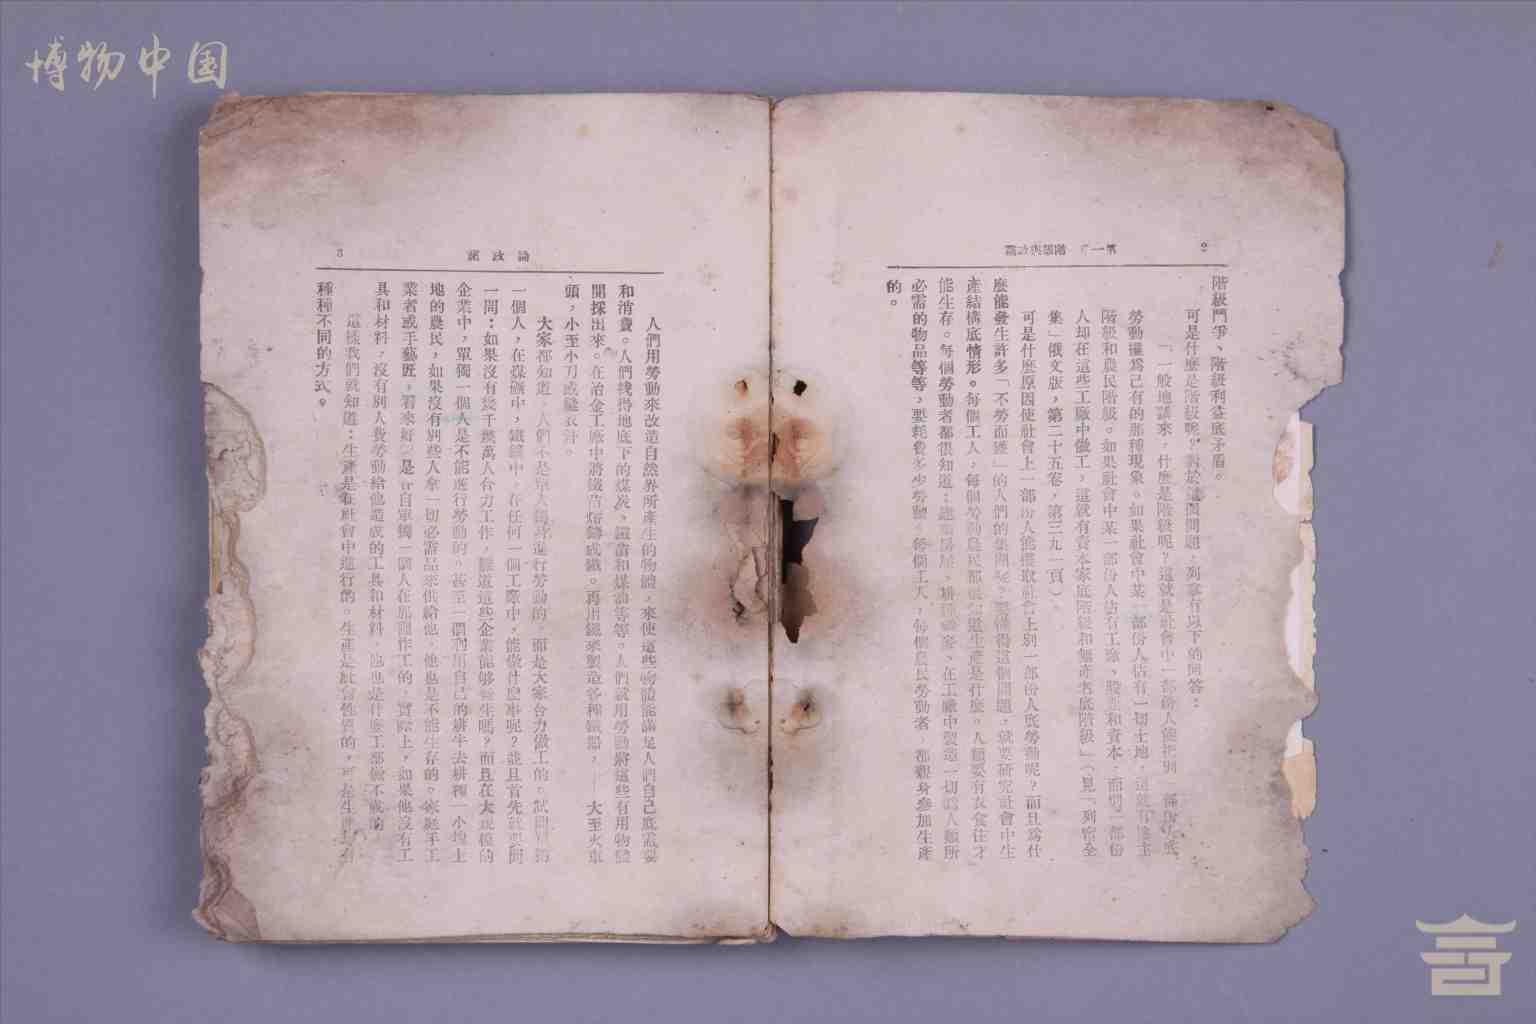 博物中国
2
第一章 階級與政黨
階級鬥爭、階級利益底矛盾。
可是什麼是階級呢?對於這個問題,列寧有以下的回答:
「一般地講來,什麼是階級呢?這就是社會中一部份人能把別一部份人底
勞動攫爲己有的那種現象。如果社會中某一部份人佔有一切土地,這就有地主
階級和農民階級。如果社會中某一部份人佔有工廠、股票和資本,而別一部份
人却在這些工廠中做工,這就有資本家底階級和無產者底階級」(見「列寧全
集」俄文版,第二十五卷,第三九一頁)。
可是什麼原因使社會上一部份人能攫取社會上別一部份人底勞動呢?而且爲什
麼能發生許多「不勞而獲」的人們的集團呢?要懂得這個問題,就要研究社會中生
產結構底情形。每個工人,每個勞動農民都很知道生產是什麼。人類要有衣食住才
能生存。每個勞動者都很知道:建築房屋、耕種、在工廠中製造一切爲人類所
必需的物品等等,要耗費多少勞動。每個工人,每個農民勞動者 都親身參加生產
的。
論政黨
3
人們用勞動來改造自然界所產生的物體,來使這些物體能滿足人們自己底需要
和消費。人們找得地底下的煤炭、鐵苗和煤油等等。人們就用勞動將這些有用物體
開採出來。在冶金工廠中將鐵苗熔鑄成鐵。再用鐵來製造各種鐵器,——大至火車
頭,小至小刀或縫衣針。
大家都知道,人們不是單人獨身進行勞動的,而是大家合力做工的。試問單獨
一個人,在煤礦中,鐵鑛中,在任何一個工廠中,能做什麼事呢?並且首先就要問
一問:如果沒有幾千幾萬人合力工作,難道這些企業能够發生嗎?而且在大規模的
企業中,單獨一個人是不能進行勞動的。甚至一個利用自己的耕牛去耕種一小塊土
地的農民,如果沒有別些人拿一切必需品來供給他 他也是不能生存的。家庭手工
業者或手藝匠,看來好像是各自單獨一個人在那裡作工的,實際上,如果他沒有工
具和材料,沒有別人費勞動給他造成的工具和材料 他也是什麼工都做不成的
這樣我們就知道:生產是在社會中進行的。生產是社會性質的,可是生產
種種不同的方式。